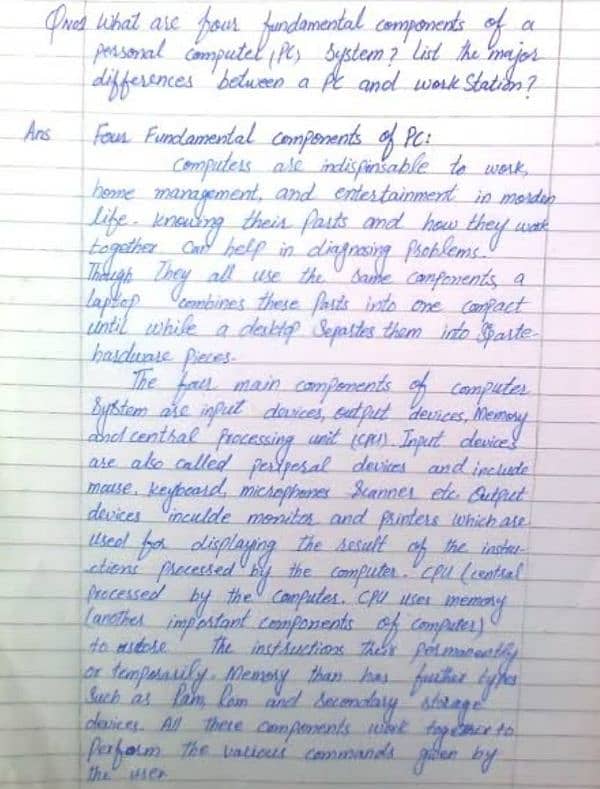 QNo1 What are four fundamental components of a
personal computer (PC) System? List the major
differences between a PC and work Station?
Ans Four Fundamental components of PC:
Computers are indispinsable to work,
home management, and entertainment in morden
life. Knowing their Parts and how they work
together can help in diagnosing Problems.
Though They all use the same components, a
laptop combines these Parts into one compact
until while a desktop Sepastes them into Sparte-
hardware Pieces.
The four main components of computer
System are input devices, output devices, Memory
and central Processing unit (CPU). Input devices
are also called peripesal devices and include
mouse, keyboard, microphones Scanner etc. Output
devices inculde monitor and printers which are
used for displaying the result of the instru-
ctions processed by the computer. CPU (central
Processed by the computer. CPU uses memory
(another important components of computer)
to the instructions Permanently
or temporarily. Memory than has further types
Such as Ram, Rom and Secondary storage
devices. All these components work together to
Perform the various commands given by
the user